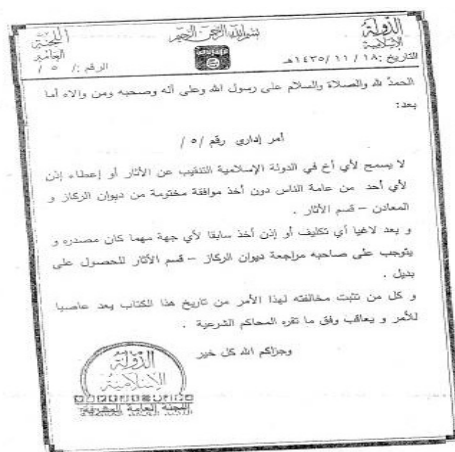 بسم الله الرحمن الرحيم
الدولة
الإسلامية
اللجنة
العامة
التاريخ: ١٨ / ١١ / ١٤٣٥هـ
الرقم: / ٥ /
الحمد لله والصلاة والسلام على رسول الله وعلى آله وصحبه ومن والاه أما
بعد:
أمر إداري رقم /٥/
لا يسمح لأي أخ في الدولة الإسلامية التنقيب عن الآثار أو إعطاء إذن
لأي أحد من عامة الناس دون أخذ موافقة مختومة من ديوان الركاز و
المعادن – قسم الآثار .
و يعد لاغيا أي تكليف أو إذن أخذ سابقا لأي جهة مهما كان مصدره و
يتوجب على صاحبه مراجعة ديوان الركاز – قسم الآثار للحصول على
بديل .
و كل من تثبت مخالفته لهذا الأمر من تاريخ هذا الكتاب يعد عاصيا
للأمر و يعاقب وفق ما تقره المحاكم الشرعية .
وجزاكم الله كل خير
الدولة
الإسلامية
اللجنة العامة المشرفة